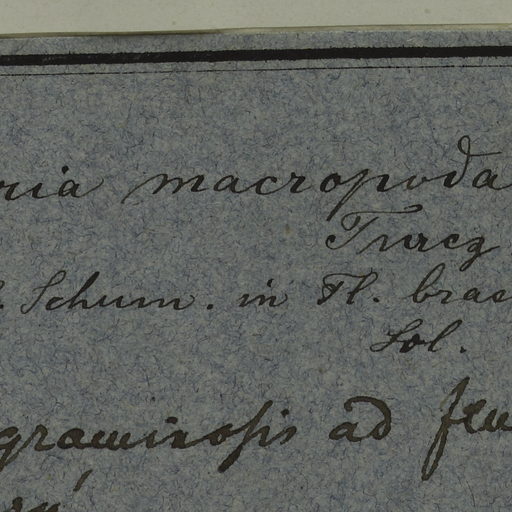 ria macropoda
Turcz
Schum. in Fl. bras
Sol.
graminosis ad flu